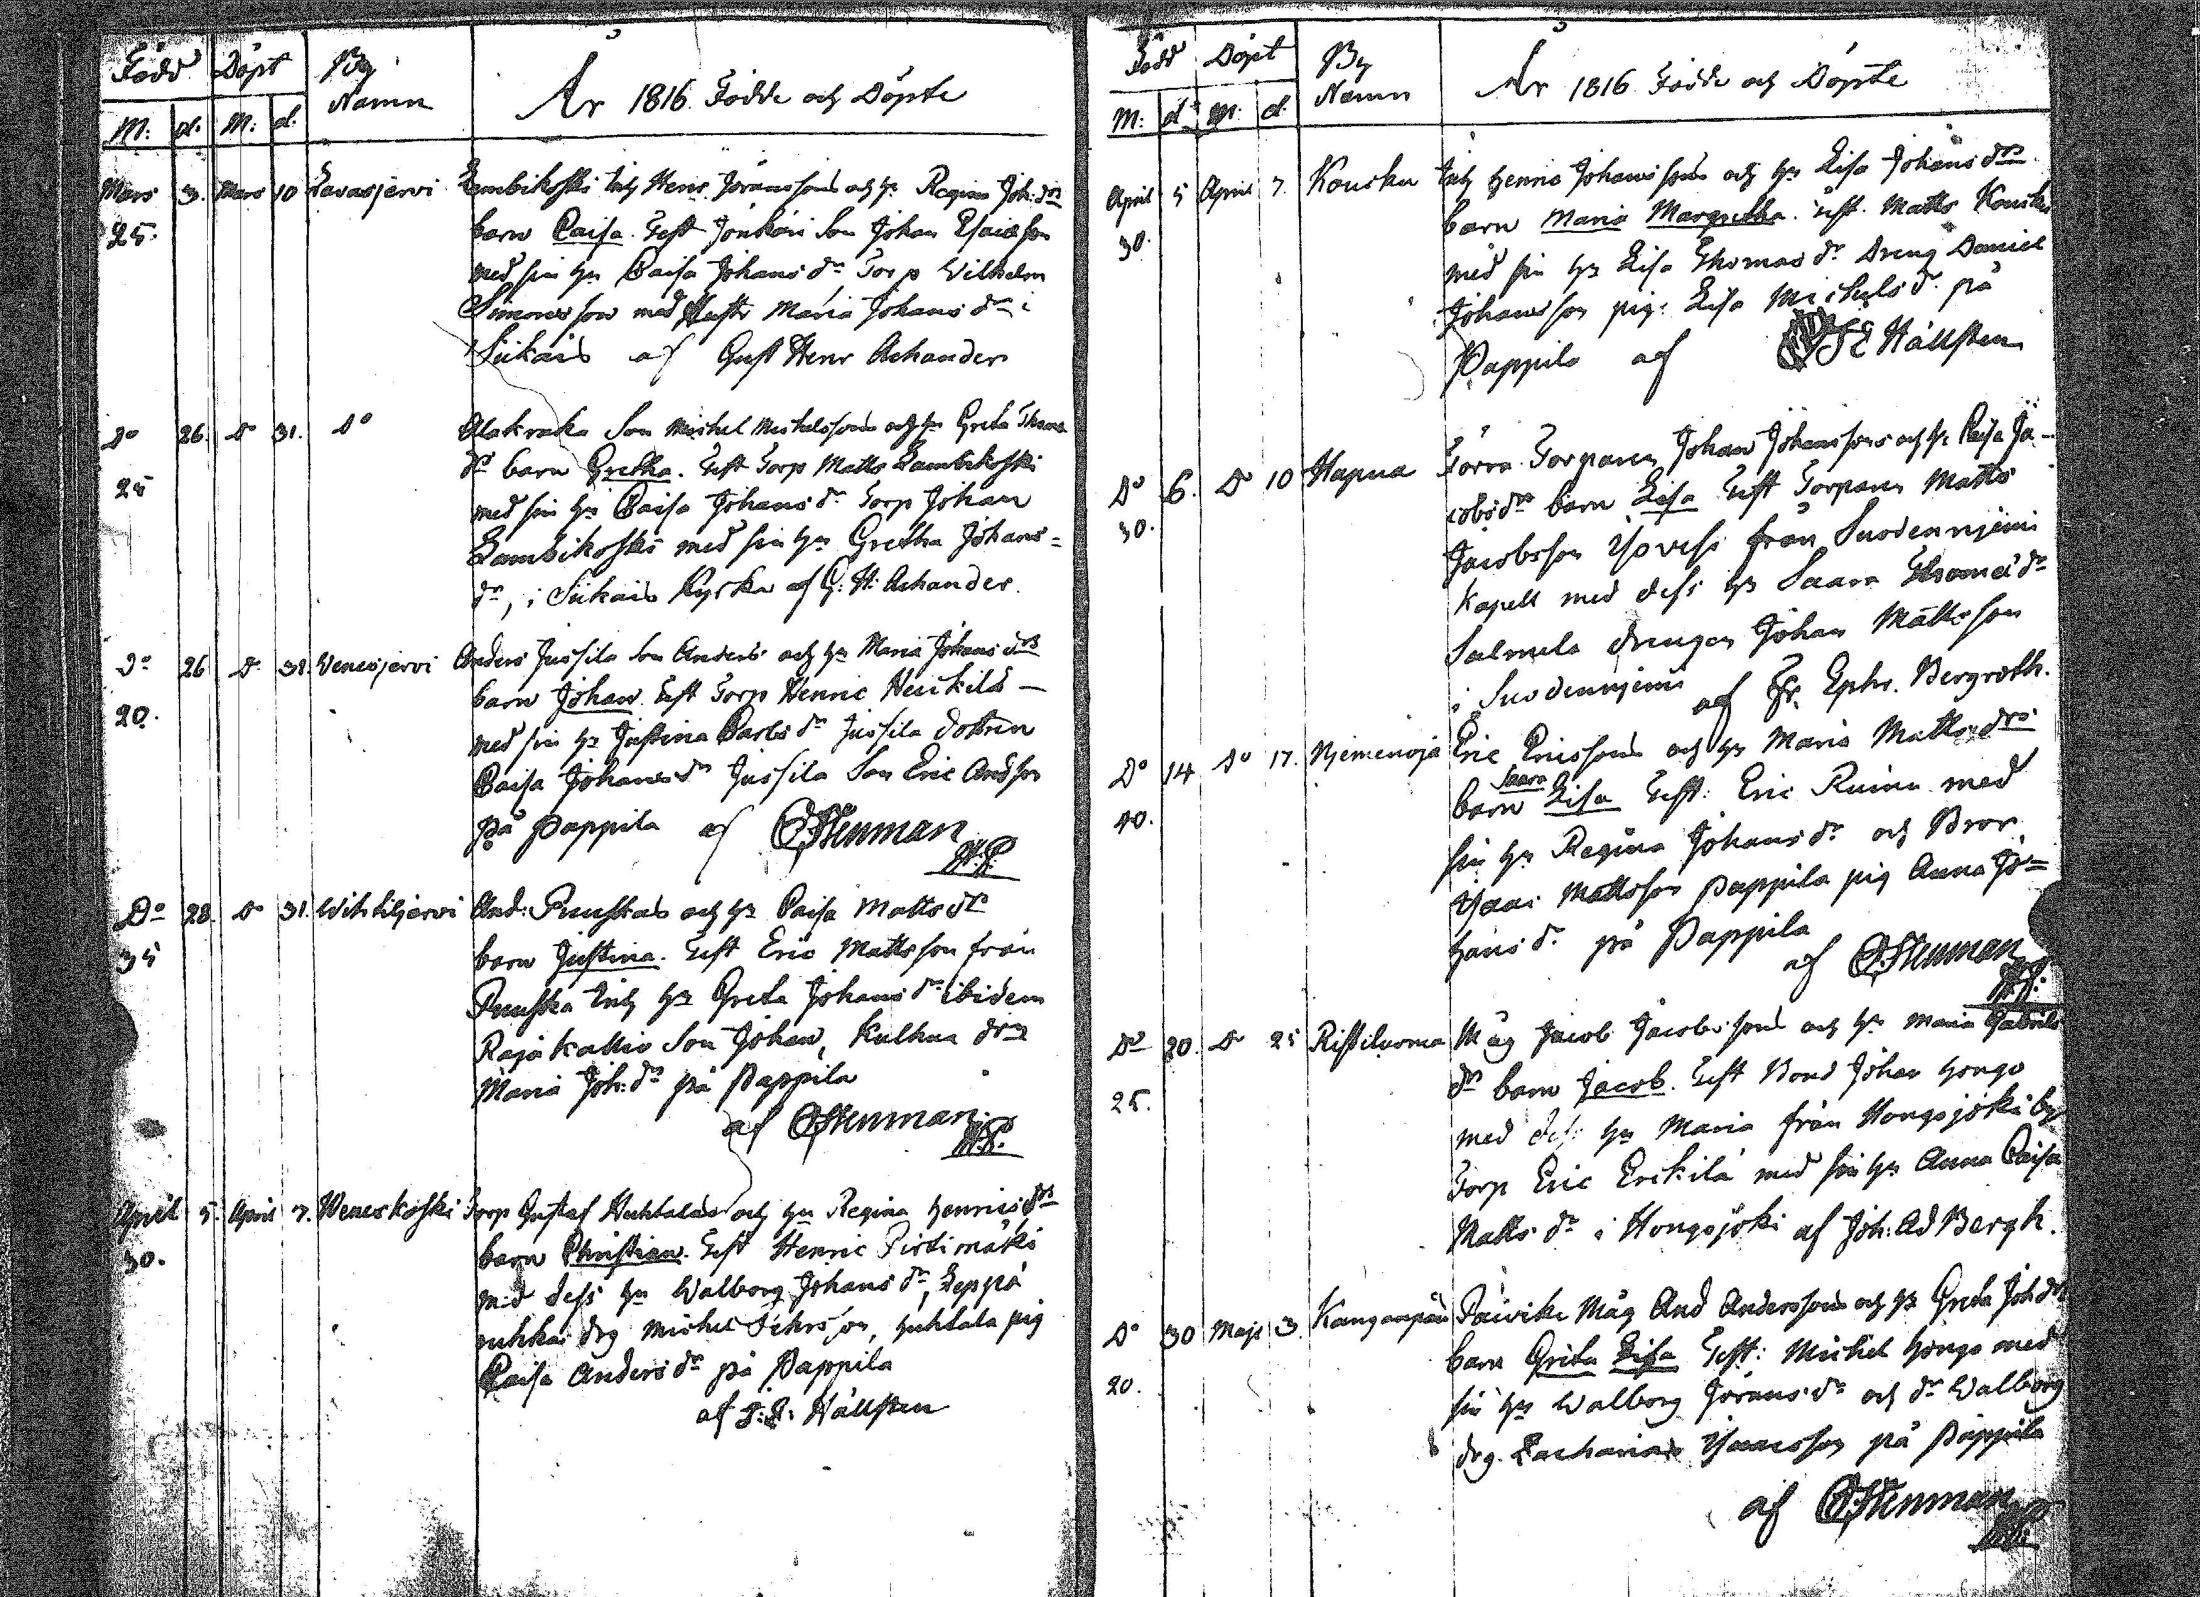 Född Döpt By
Namn
M: d. M: d.
År 1816 Födde och Döpte
Mars 3. Mars 10 Lavasjervi Lambikoski Inh Henr. Joransons och h:u Regina Joh:drs
25. barn Caisa. Test Jonkäri Son Johan Esaiasson
med sin h:u Caisa Johans dr Torp Wilhelm
Simonsson med Hustr Maria Johans dr i
Siikais af Gust Henr Achander
Do 26. Do 31. Do Alakraka Son Michel Michelssons och h:u Greta Thomas
dr barn Gretha. Test Torp Matts Lambikoski
25 med sin h:u Caisa Johans dr Torp Johan
Lambikoski med sin h:u Gretha Johans=
dr, i Siikais Kyrka af G: H: Achander.
Do 26 Do 31. Venesjervi Anders Jussila Son Anders och h:u Maria Johans drs
barn Johan Test Torp Henric Heikilä –
20. med sin h:u Justina Carls dr Jussila dottren
Caisa Johans dr Jussila Son Eric Andson
på Pappila af CStenman
Do 28. Do 31. Wihtiljärvi And: Puuskas och h:u Caisa Matts dr
35 barn Justina. Test Eric Mattsson från
Puuska Inh h:u Greta Johans dr ibidem
Rajakallio Son Johan, Kulhua drn
Maria Joh: dr på Pappila
af CStenman
April 5. April 7. Weneskoski Torp Gustaf Huhtalas och h:u Regina Henrics drs
30. barn Christian. Test Henric Pirtimäki
med dess h:u Walborg Johans dr, Leppä
ruhka drg Michel , Huhtala pig
Caisa Anders dr på Pappila
af Hällsten
Född Döpt By
Namn
M: d. M: d.
År 1816 Födde och Döpte
April 5 April 7. Kousku Inh Henric Johanssons och h:u Lisa Johans drs
30. barn Maria Margretha. Test. Matts Kousku
med sin h:u Lisa Thomas dr Dreng Daniel
Johansson pig: Lisa Michels dr på
Pappila af Hällsten
Do 6. Do 10 Hapua Torra Torparen Johan Johanssons och h:u Caisa Ja-
cobs drs barn Lisa Test Torparen Matts
30. Jacobsson Isovesi från Suodennjemi
Kapell med dess h:u Saara Thomæ dr
Salmela drengen Johan Mattsson
i Suodennjemi af Fr. Ephr. Bergroth.
Do 14 Do 17. Njemenoja Eric Ericssons och h:u Maria Matts drs
Saara
40. barn Lisa Test: Eric Ruina med
sin h:u Regina Johans dr och Bror
Isaac Mattsson Pappila pig Anna Jo=
hans dr. på Pappila
af CStenman
Do 20. Do 25 Ristiluoma Måg Jacob Jacobssons och h:u Maria Gabriels
25. drs barn Jacob. Test Bond Johan Hongo
med dess h:u Maria från Hongojoki by
Torp Eric Erikilä med sin h:u Anna Caisa
Matts dr i Hongojoki af Joh: Ad Bergh.
Do 30 Maji 3. Kanganpää Päivike Måg And Anderssons och h:u Greta Joh drs
barn Greta Lisa Test: Michel Hongo med
20. sin h:u Walborg Jörans dr och dr Walborg
drg. Zacharias Isaacsson på Pappila
af CStenman